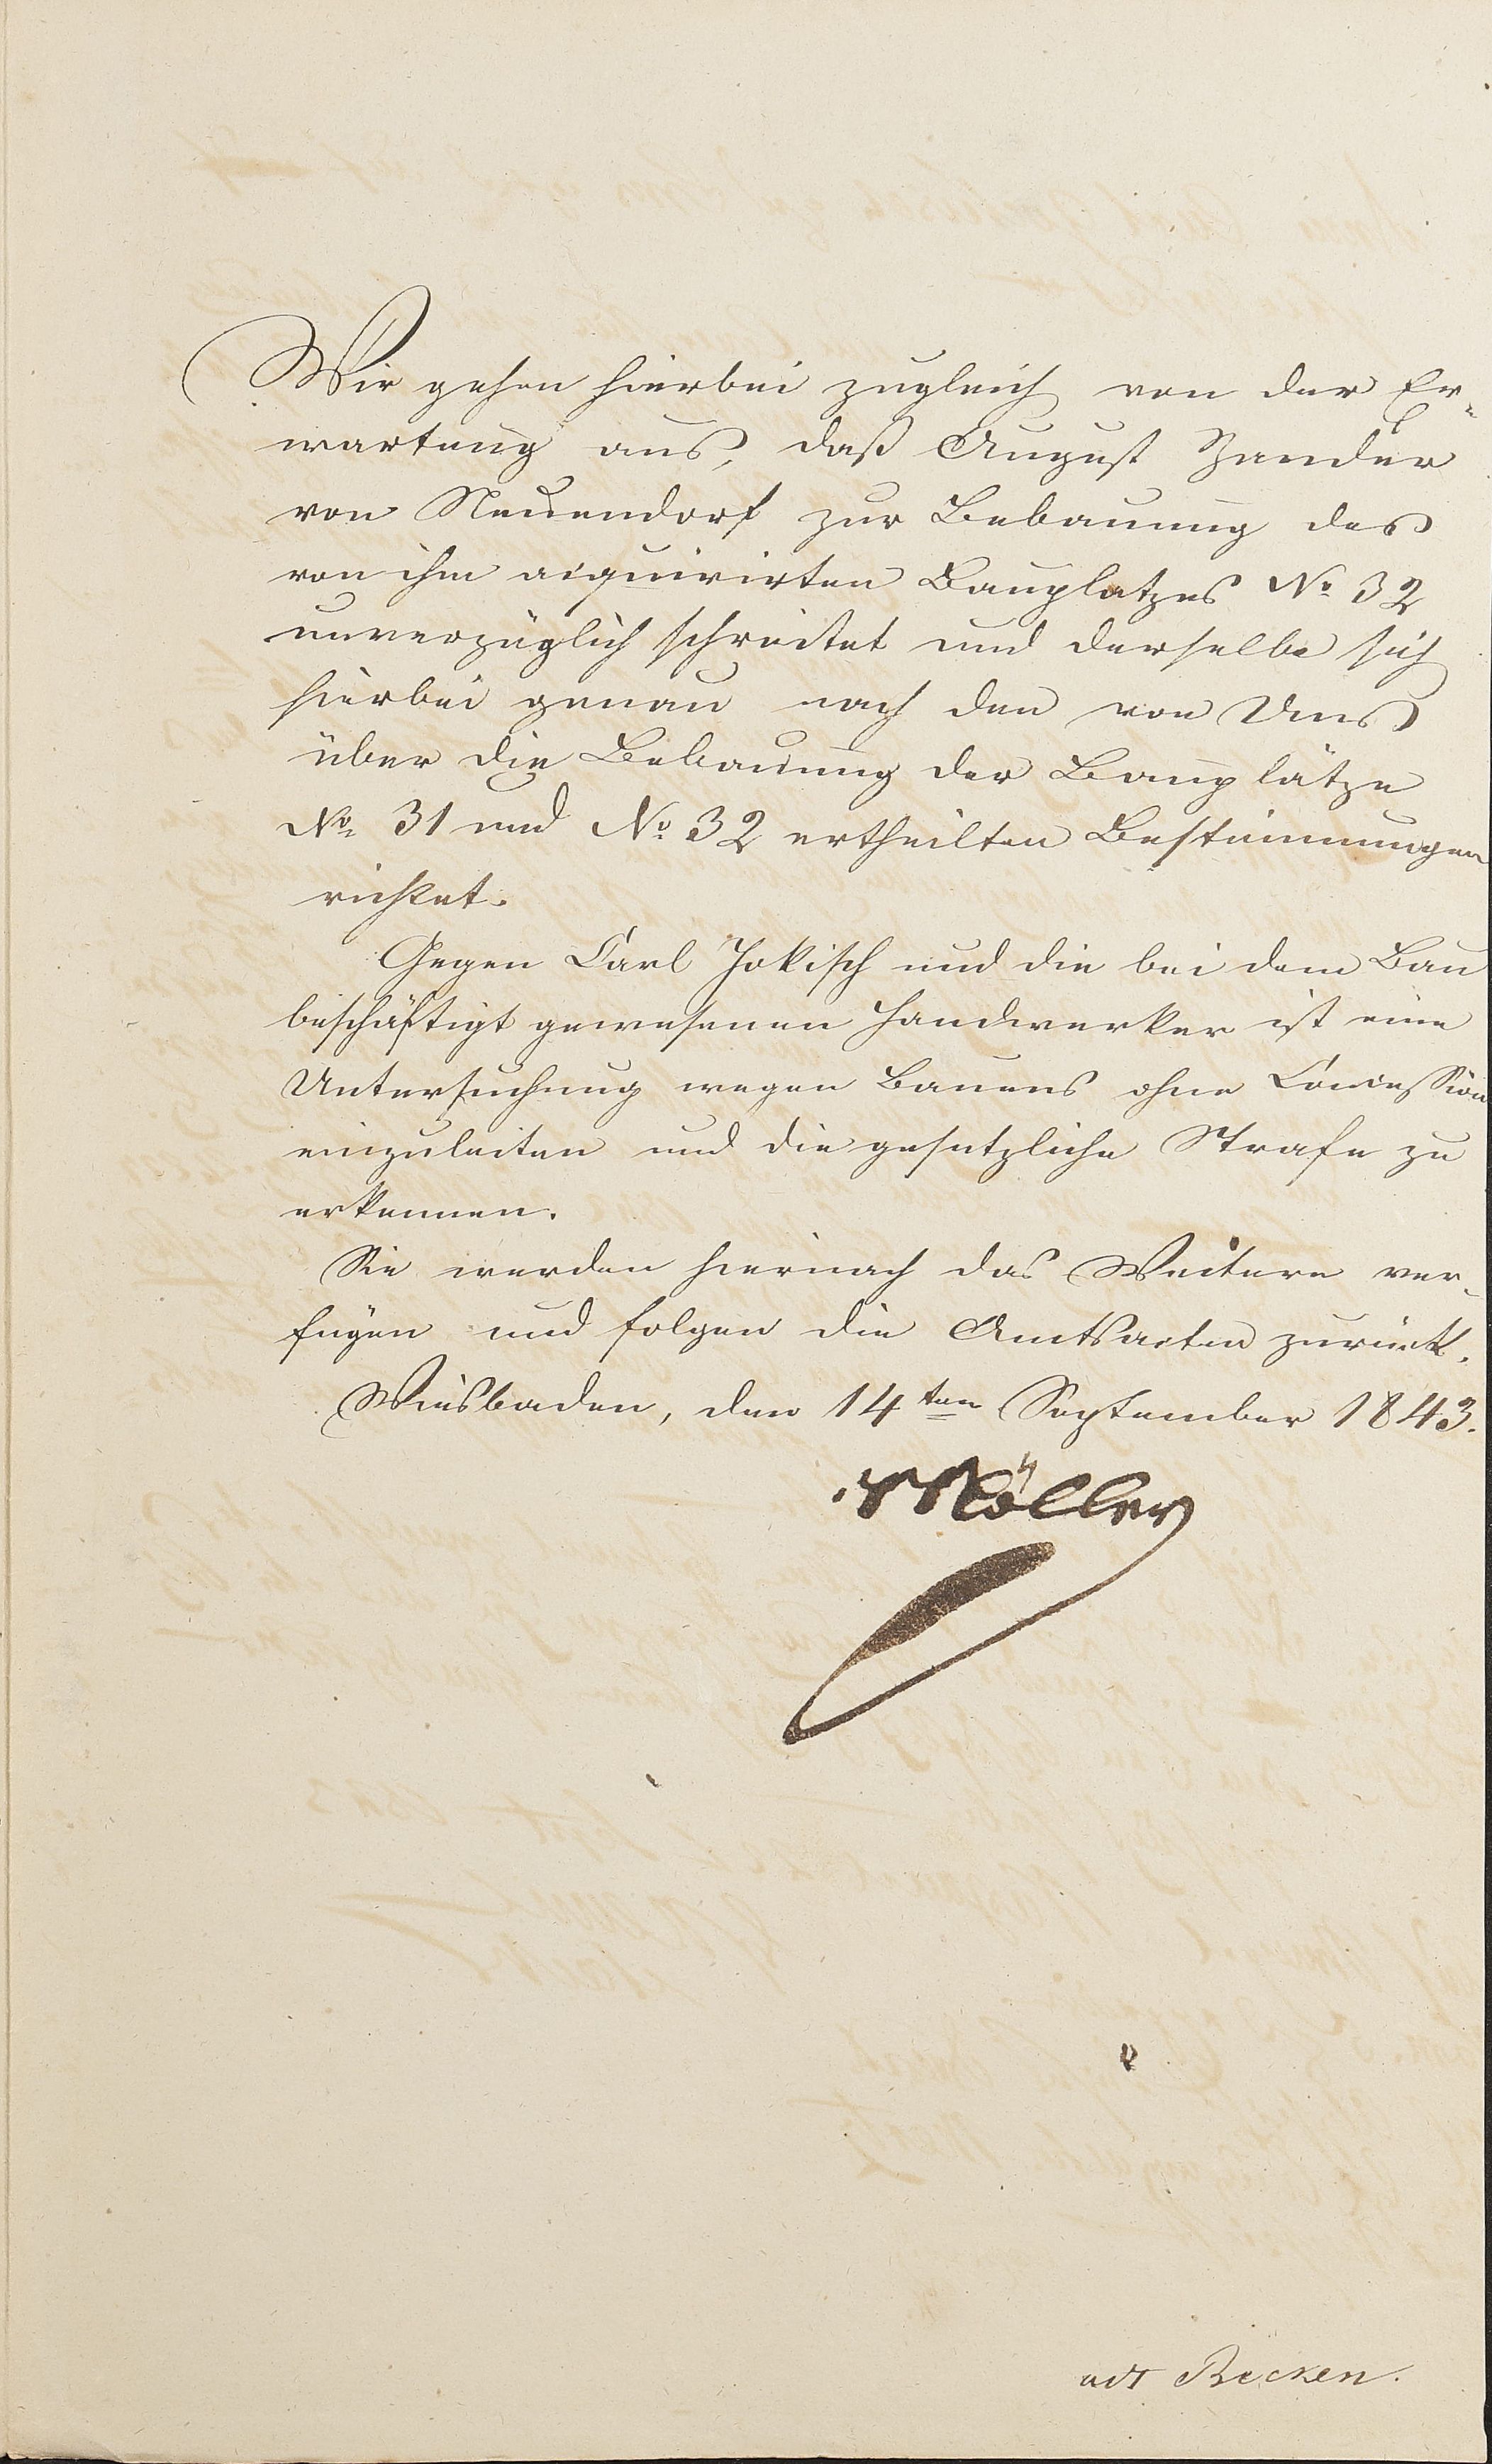 Wir gehen hierbei zugleich von der Er-
wartung aus, daß August Zander
von Neuendorf zur Bebauung des
von ihm aiquirirten Bauplatzes No 32
unverzüglich schreitet und derselbe sich
hierbei genau nach den von Uns
über die Bebauung der Bauplätze
No 31 und No 32 ertheilten Bestimmungen
richtet.
Gegen Carl Jokisch und die bei dem Bau
beschäftigt gewesenen Handwerker ist eine
Untersuchung wegen Bauens ohne Concession
einzuleiten und die gesetzliche Strafe zu
erkennen.
Sie werden hiernach das Weitere ver-
fügen und folgen die Amtsacten zurück.
Wiesbaden, den 14ten September 1843.
Möller
vdt Recken.